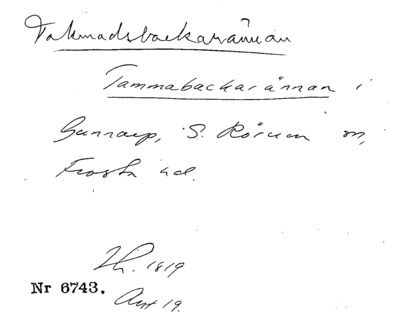 Takmadsbackarännan
Tammabackarännan i
Gunnarp, S. Rörum sn,
Frosta hd.
Zh. 1819
Nr 6743.
Akt 19.